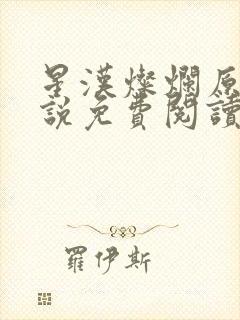 星漢燦爛原
說免費閱讀
羅伊斯